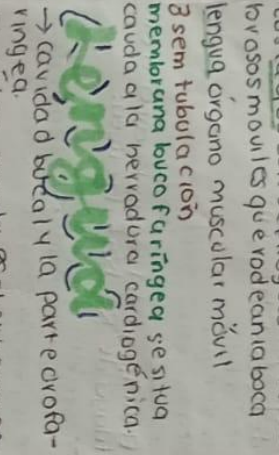 brosos moviles que rodean la boca
lengua órgano muscular móvil
3 sem tubulación
membrana bucofaríngea se situa
cauda a la herradura cardiogénica.
Lengua
→ cavidad bucal y la parte orofa-
ringea.